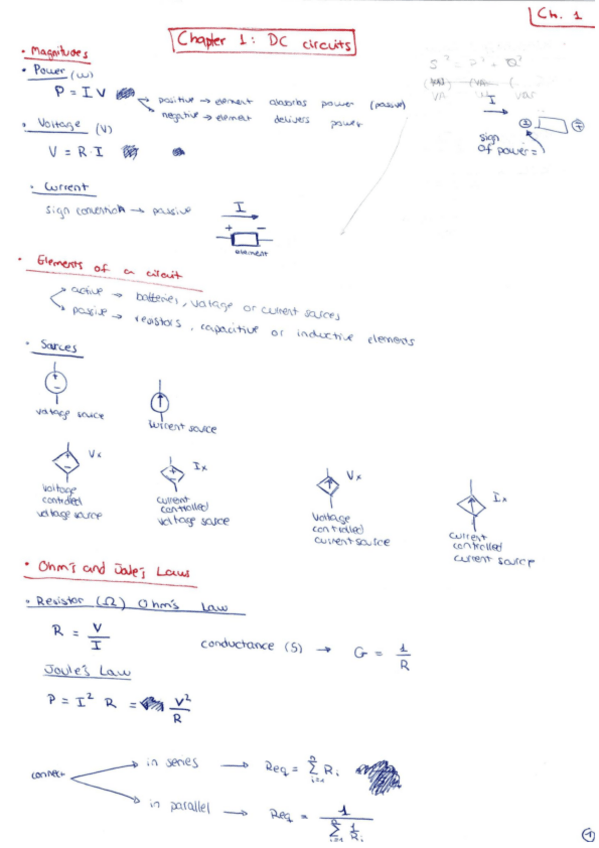 Ch. 1
Chapter 1: DC circuits
• Magnitudes
• Power (W)
P = I V
positive → element absorbs power (passive)
negative → element delivers power
S² = P² + Q²
I
sign
of power =
• Voltage (V)
V = R·I
• Current
sign convention → passive
I
+ −
element
• Elements of a circuit
active → batteries, voltage or current sources
passive → resistors, capacitive or inductive elements
• Sources
+
−
voltage source
current source
+
−
Vx
voltage
controlled
voltage source
+
−
Ix
current
controlled
voltage source
Vx
voltage
controlled
current source
Ix
current
controlled
current source
• Ohm's and Joule's Laws
• Resistor (Ω) Ohm's Law
R = V/I
conductance (S) → G = 1/R
Joule's Law
P = I² R = V²/R
connect
in series → Req = Σ Ri
in parallel → Req = 1 / Σ 1/Ri
1